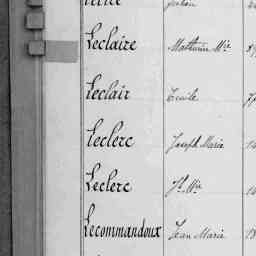 Leclaire Mathurin Mie
Leclair Emile
Leclerc Joseph Marie
Leclerc Jh Mie
Lecommandoux Jean Marie